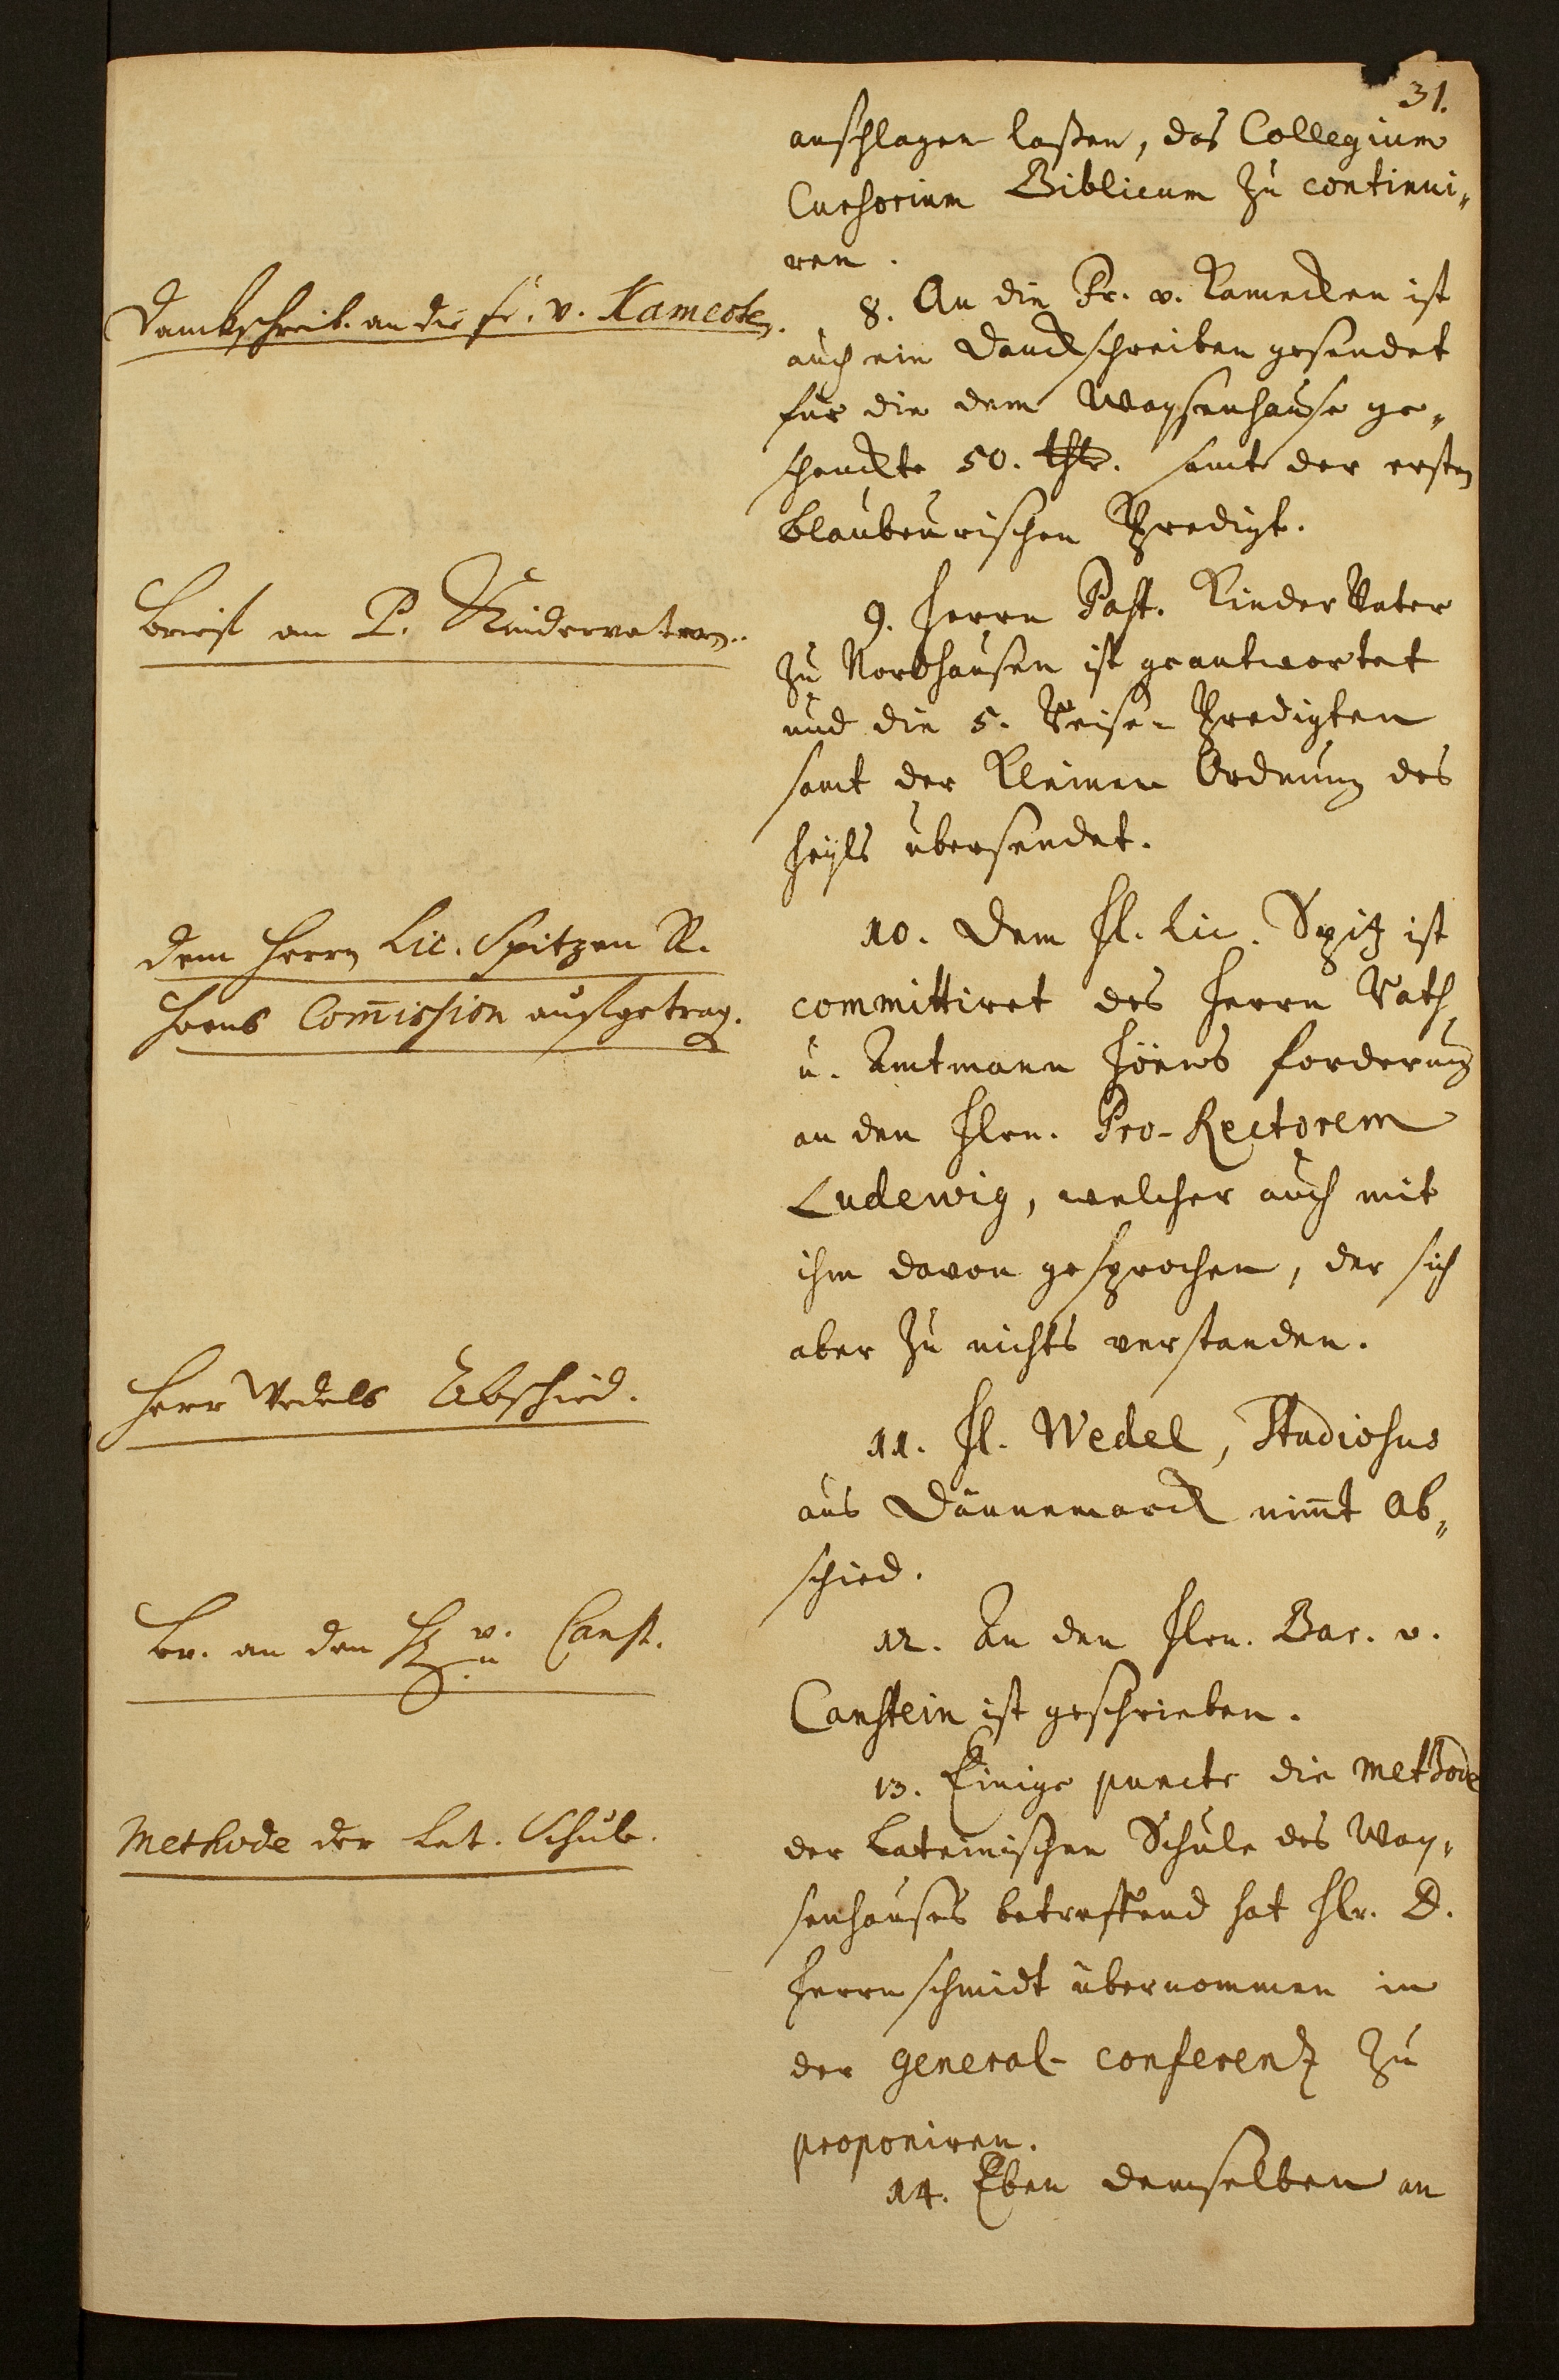 31.
anschlagen laßen, das Collegium
Cursorium Biblicum zu continui„
ren.
Danckschreib. an die fr. v. Kameck.
8. An die Fr. v. Kamecken ist
auch ein Danckschreiben gesendet
für die dem Waysenhause ge„
schenckte 50. thlr. samt der ersten
Blaubeurischen Predigt.
Brieff an P. Kindervatern.
9. Herrn Past. Kinder Vater
zu Nordhausen ist geantwortet
und die 5. Reise-Predigten
samt der Kleinen Ordnung des
Heyls übersendet.
Dem Herrn Lic. Spitzen R.
Horns Com̄ission aufgetrag.
10. Dem H. Lic. Spitz ist
committiret des Herrn Rath
u. Amtmann Hörns forderung
an den Hrn. Pro-Rectorem
Ludewig, welcher auch mit
ihm davon gesprochen, der sich
aber zu nichts verstanden.
Herr Wedels Abschied.
11. H. Wedel, Studiosus
aus Dännemarck nim̄t Ab„
schied.
Br. an den H. v. Canst.
12. An den Hrn. Bar. v.
Canstein ist geschrieben.
Methode der Lat. Schule.
13. Einige puncte die Methode
der Lateinischen Schule des Way„
senhauses betreffend hat Hr. D.
Herrnschmidt übernommen in
der general-conferentz zu
proponiren.
14. Eben demselben an